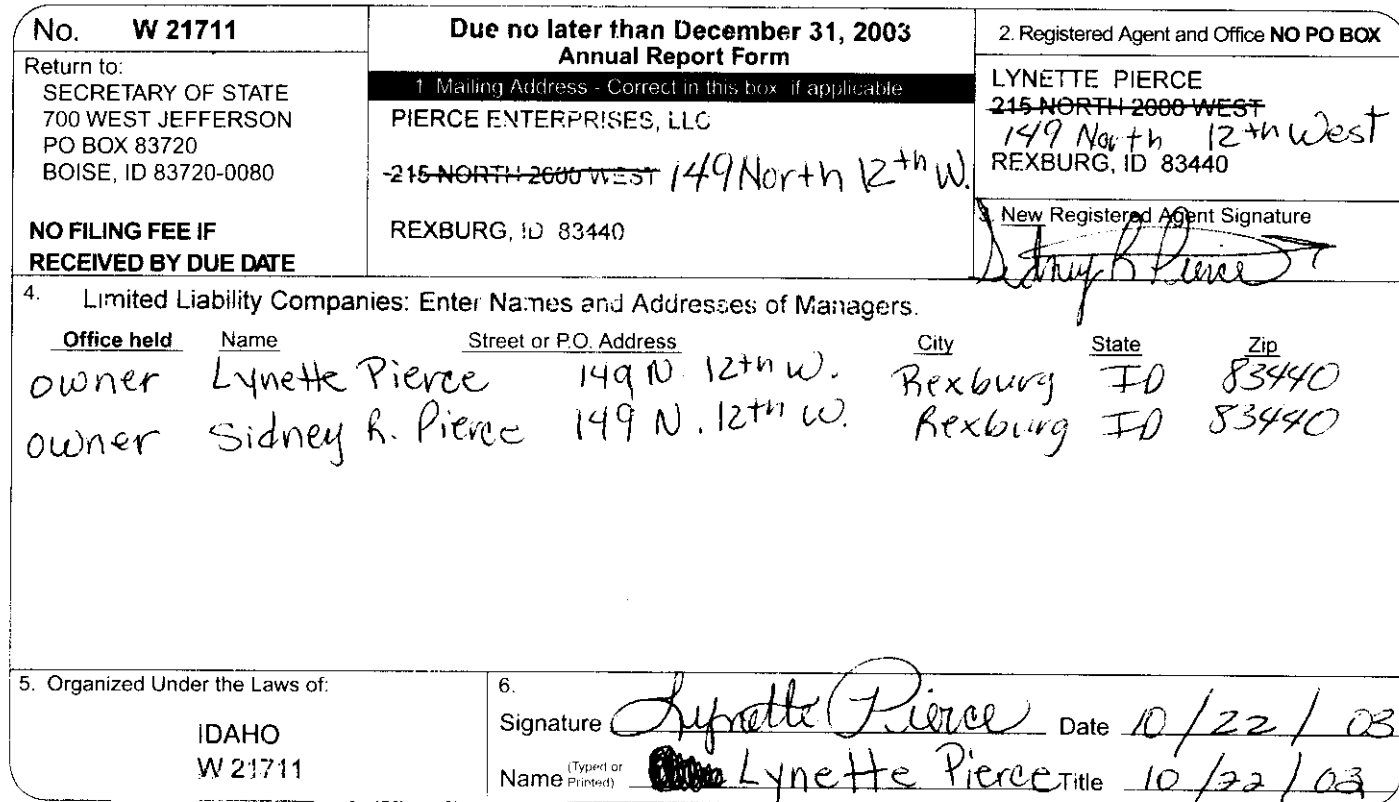 No. W 21711
Return to:
SECRETARY OF STATE
700 WEST JEFFERSON
PO BOX 83720
BOISE, ID 83720-0080
NO FILING FEE IF
RECEIVED BY DUE DATE
Due no later than December 31, 2003
Annual Report Form
1 Mailing Address - Correct in this box if applicable
PIERCE ENTERPRISES, LLC
215 NORTH 2000 WEST 149 North 12th W.
REXBURG, ID 83440
2. Registered Agent and Office NO PO BOX
LYNETTE PIERCE
215 NORTH 2000 WEST
149 North 12th West
REXBURG, ID 83440
3. New Registered Agent Signature
Sidney R Pierce
4. Limited Liability Companies: Enter Names and Addresses of Managers.
Office held Name Street or P.O. Address City State Zip
owner Lynette Pierce 149 N. 12th W. Rexburg ID 83440
owner Sidney R. Pierce 149 N. 12th W. Rexburg ID 83440
5. Organized Under the Laws of:
IDAHO
W 21711
6.
Signature Lynette Pierce Date 10/22/03
Name (Typed or Printed) Lynette Pierce Title 10/22/03